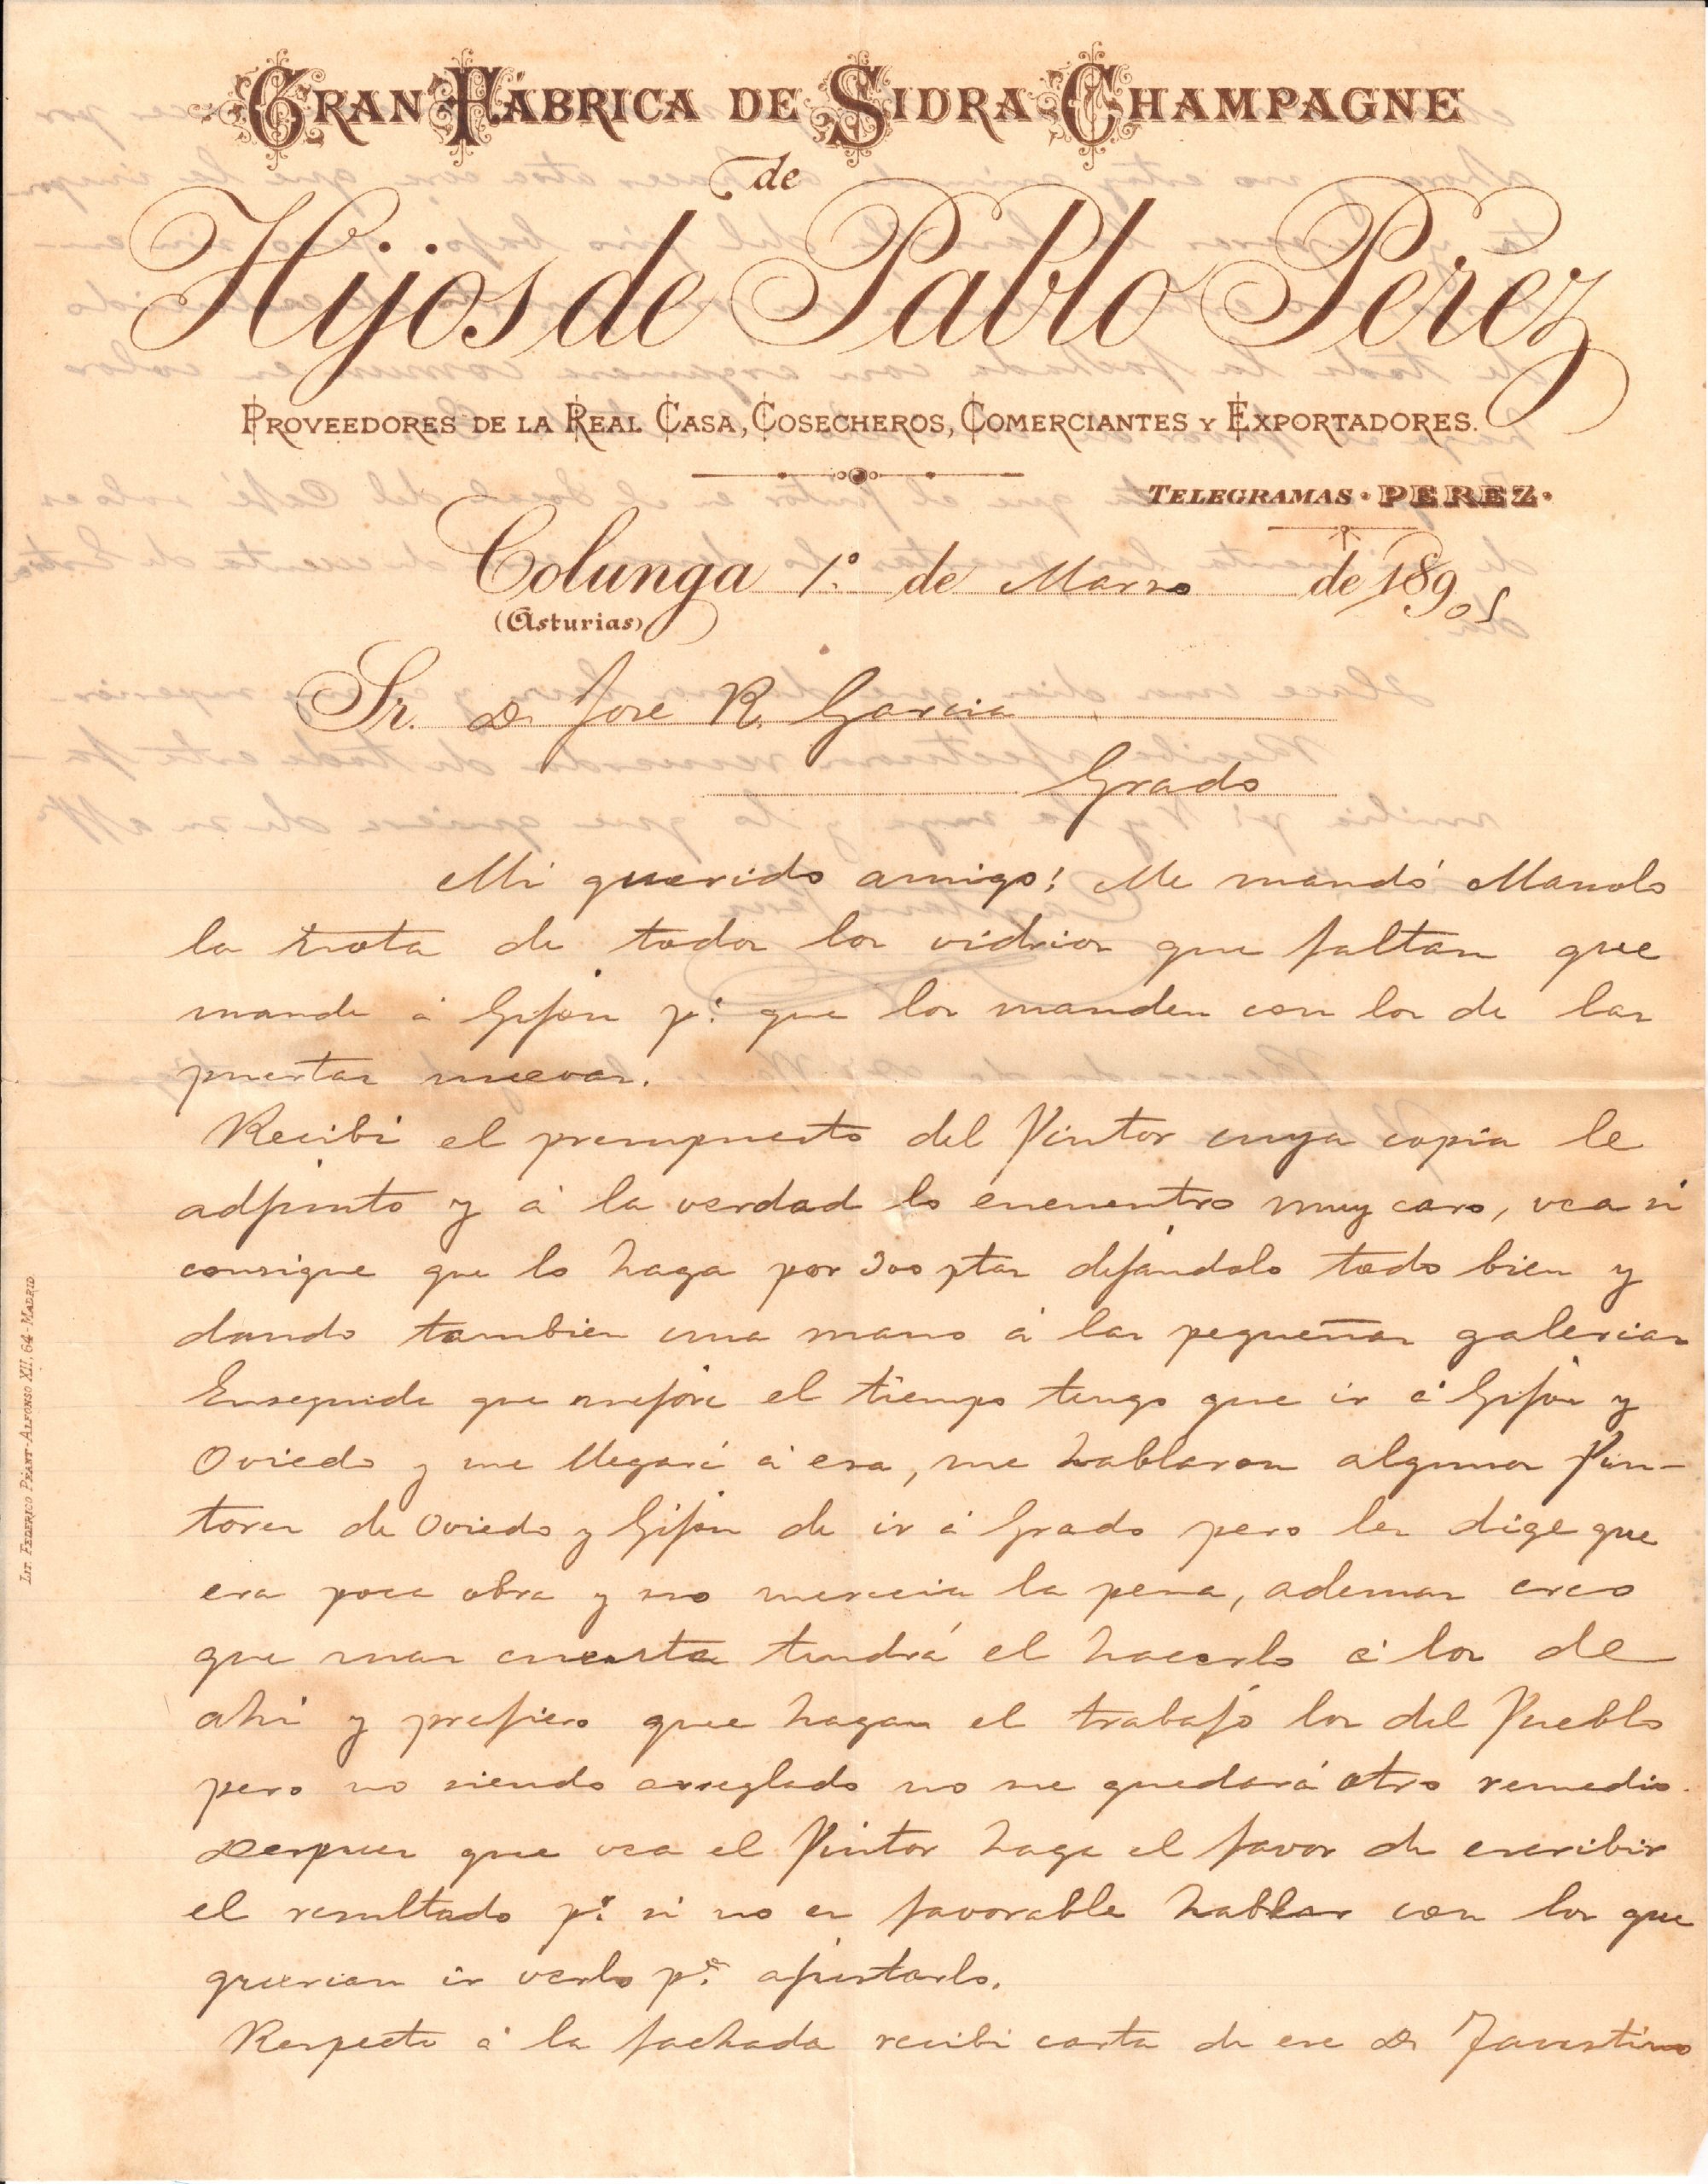 GRAN FÁBRICA DE SIDRA CHAMPAGNE
de
Hijos de Pablo Pérez
PROVEEDORES DE LA REAL CASA, COSECHEROS, COMERCIANTES Y EXPORTADORES.
TELEGRAMAS · PEREZ·
Colunga 1.º de Marzo de 189
(Asturias)
Sr. Dn Jose R. Garcia
Grado
Mi querido amigo: Me mandó Manolo
la nota de todos los vidrios que faltan que
mande á Gijón p.ª que los manden con los de las
puertas nuevas.
Recibi el presupuesto del Pintor cuya copia le
adjunto y á la verdad lo encuentro muy caro, vea si
consigue que lo haga por 300 ptas dejándolo todo bien y
dando tambien una mano á las pequeñas galerias
Enseguida que mejore el tiempo tengo que ir á Gijón y
Oviedo y me llegaré á esa, me hablaron algunos Pin-
tores de Oviedo y Gijon de ir á Grado pero les dige que
era poca obra y no merecia la pena, ademas creo
que mas cuenta tendrá el hacerlo á los de
ahi y prefiero que hagan el trabajo los del Pueblo
pero no siendo arreglado no me quedará otro remedio.
Despues que vea el Pintor haga el favor de escribir
el resultado p.ª si no es favorable hablar con los que
querian ir verlo p.ª ajustarlo.
Respecto á la fachada recibi carta de ese Dn Faustino
LIT. FEDERICO PEANT-ALFONSO XII. 64-MADRID.